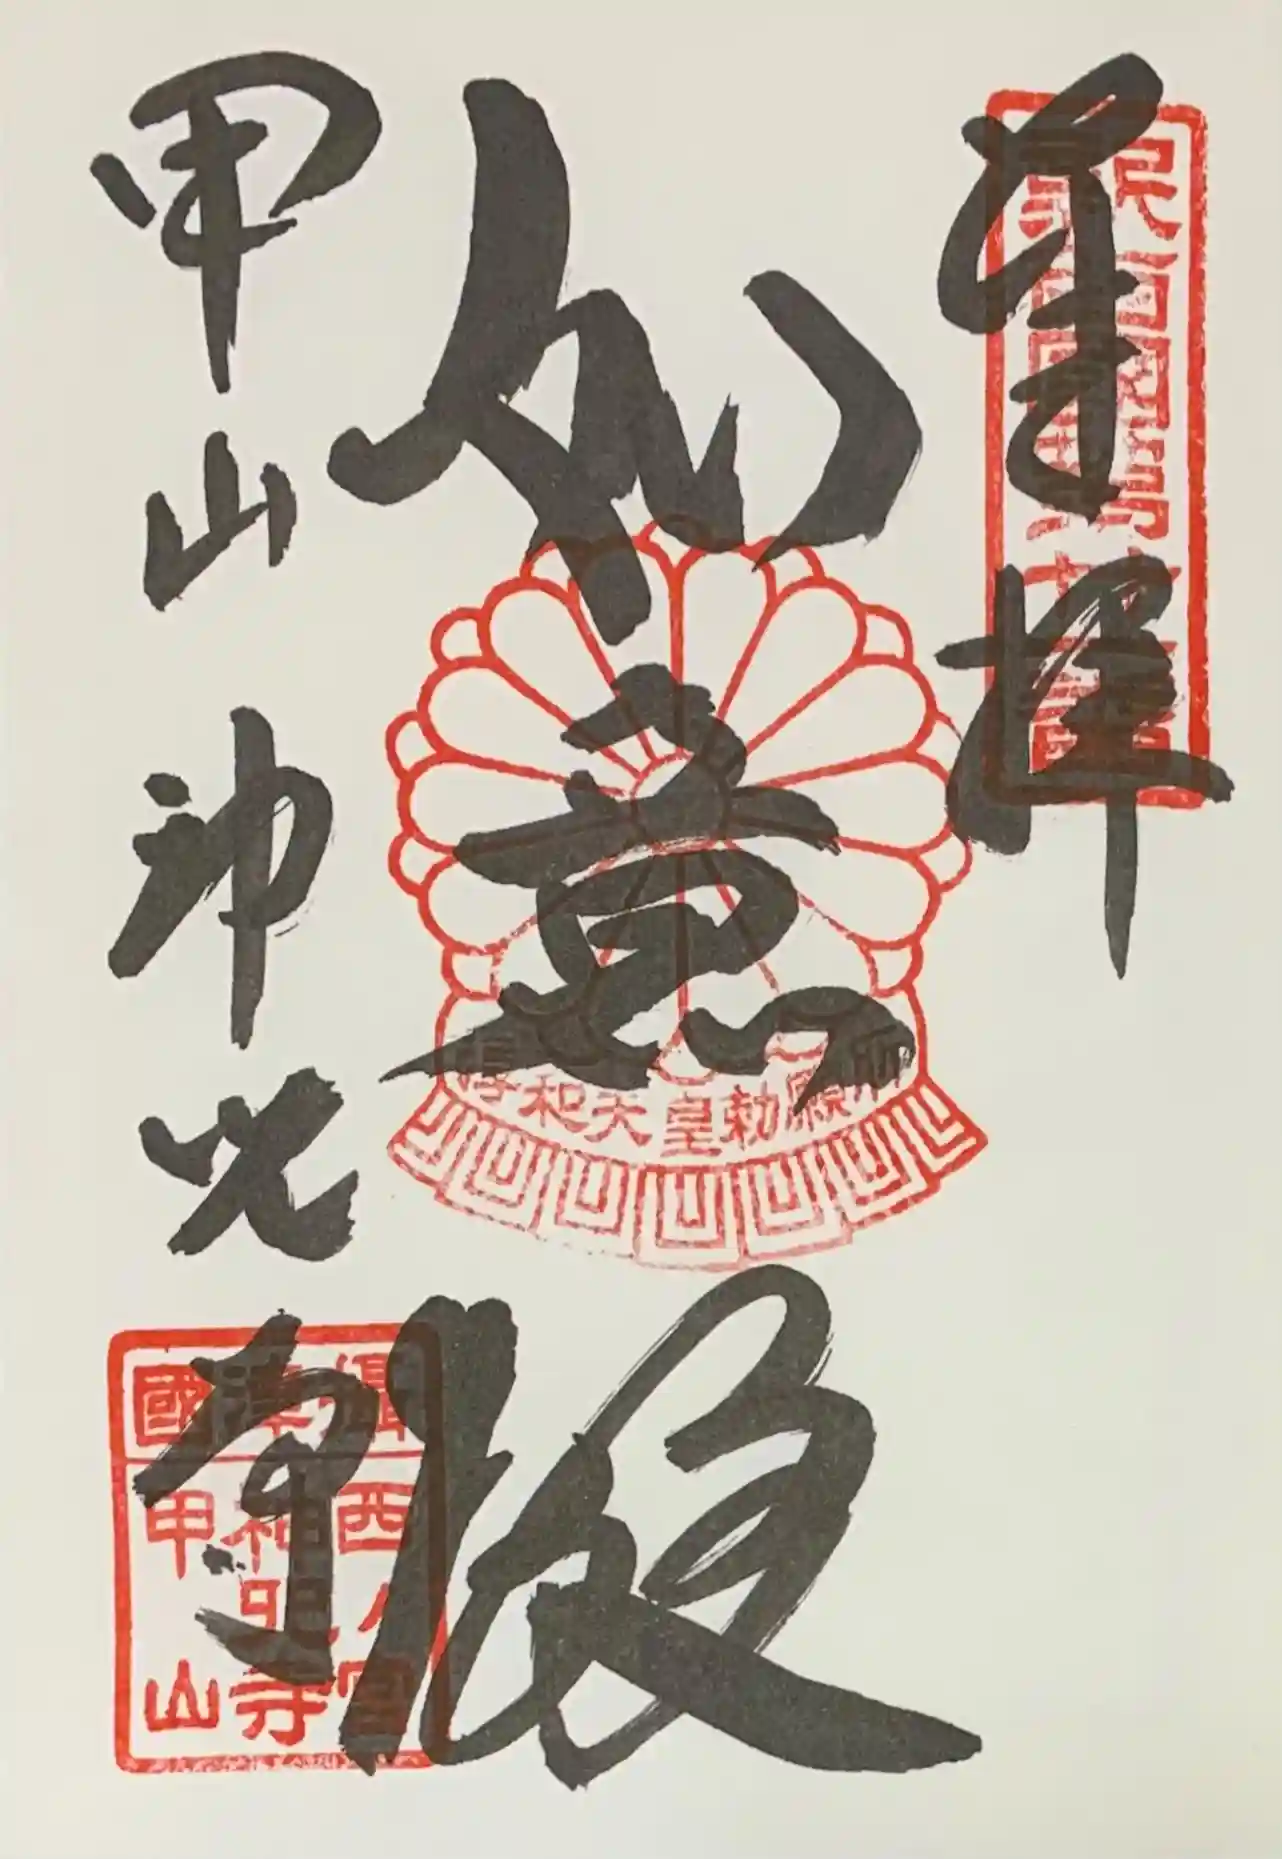 奉拝
如意殿
甲山 神呪寺
淳和天皇勅願所
攝津國
西ノ宮
神呪寺
甲山